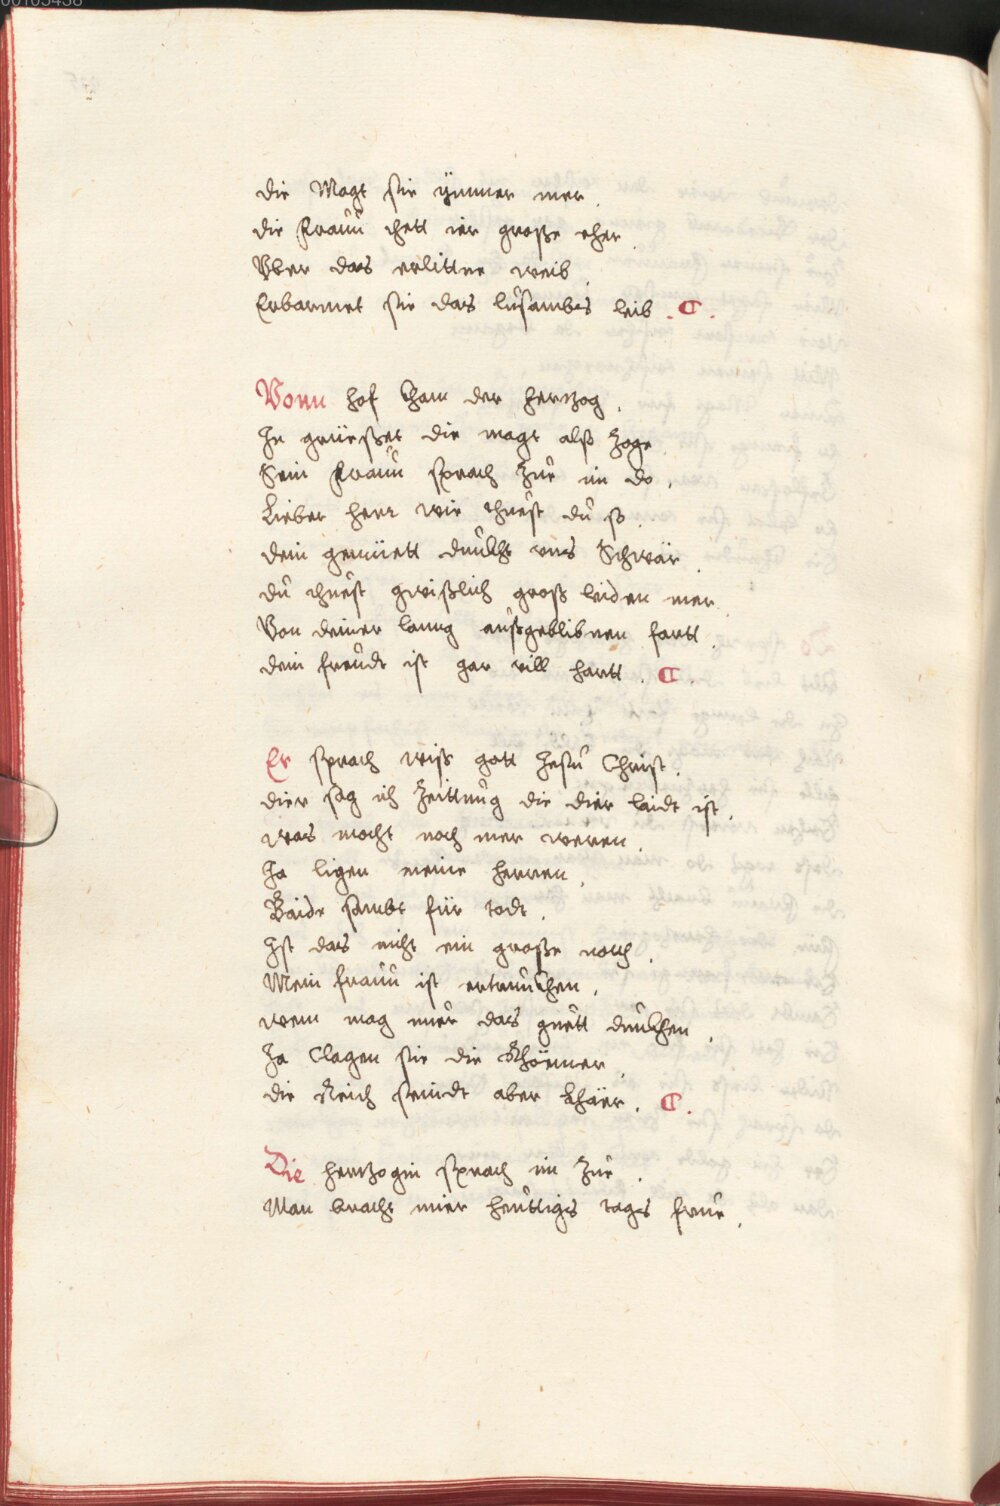 die Magt sie ÿmmer mer.
die Frauu thett ier große eher.
Vber das erlittne weib.
Erbarmet sie das lusambes leib. C.
Vonn hof kham der hertzog.
In grüesset die magt alß Zoge.
Sein Frauu sprach Zue im do.
Lieber herr wie thuest du so.
dein gemüett dunckht uns Schwär.
du thuest gwißlich groß leiden mer.
Von deiner lanng außgeblibnen fartt.
dein freudt ist gar vill hartt. C.
Er sprach wiß gott Jesu Christ.
dier sag ich Zeittung die dier laidt ist.
was mocht noch mer weren.
Ja ligen meine herren.
Baide sambt für todt.
Ist das nicht ein große noth.
Mein frauu ist ertrunckhen.
wem mag nuer das guett dunckhen.
Ja Clagen sie die Rhömer.
die Reich seindt aber khäer. C.
Die hertzogin sprach im Zue.
Man bracht mier heuttigs tags frue.